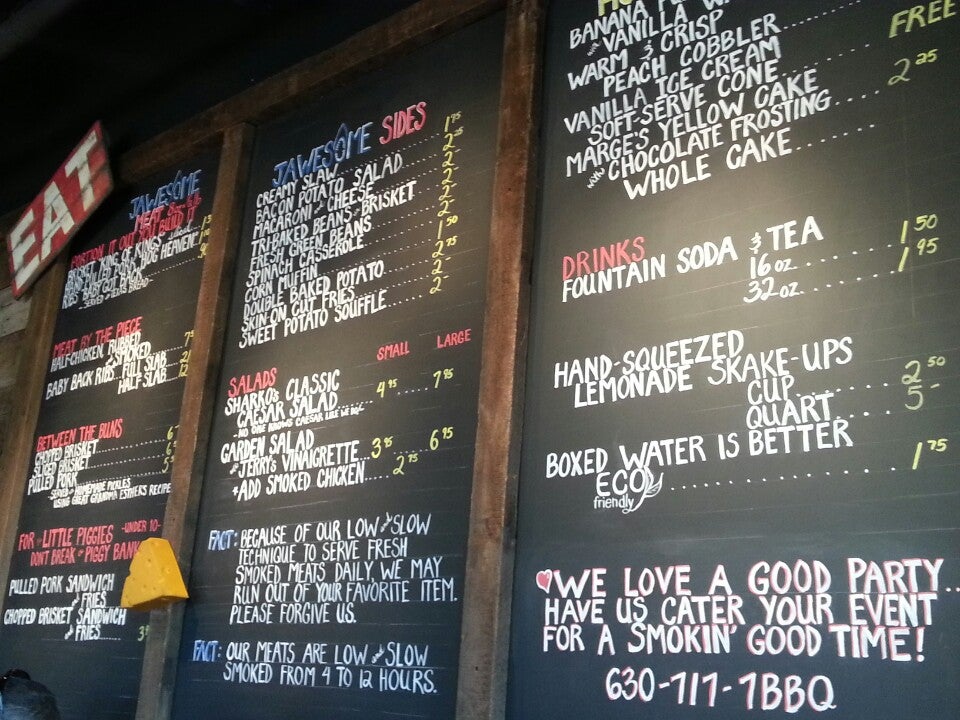 EAT
JAWESOME
MEAT
PORTION IT OUT YOU BUILD IT
BRISKET KING OF KINGS
HOG HEAVEN
RIBS BABY GOT BACK
MEAT BY THE PIECE
HALF-CHICKEN RUBBED
& SMOKED
BABY BACK RIBS FULL SLAB
HALF SLAB 12
BETWEEN THE BUNS
CHOPPED BRISKET 6
SLICED BRISKET
PULLED PORK 5
SERVED WITH HOMEMADE PICKLES
USING GREAT GRANDMA ESTHER'S RECIPE
FOR THE LITTLE PIGGIES -UNDER 10-
DON'T BREAK THE PIGGY BANK
PULLED PORK SANDWICH
AND FRIES
CHOPPED BRISKET SANDWICH
AND FRIES
JAWESOME SIDES
CREAMY SLAW 1.75
BACON POTATO SALAD 2.25
MACARONI AND CHEESE 2-
TRI-BAKED BEANS AND BRISKET 2-
FRESH GREEN BEANS 2-
SPINACH CASSEROLE 2-
CORN MUFFIN 1.50
DOUBLE BAKED POTATO 2.75
SKIN-ON CUT FRIES 2-
SWEET POTATO SOUFFLE 2-
SMALL LARGE
SALADS
SHARKO'S CLASSIC
CAESAR SALAD 4.95 7.95
NO ONE KNOWS CAESAR LIKE WE DO
GARDEN SALAD
JERRY'S VINAIGRETTE 3.95 6.95
+ADD SMOKED CHICKEN 2.75
FACT: BECAUSE OF OUR LOW AND SLOW
TECHNIQUE TO SERVE FRESH
SMOKED MEATS DAILY, WE MAY
RUN OUT OF YOUR FAVORITE ITEM.
PLEASE FORGIVE US.
FACT: OUR MEATS ARE LOW AND SLOW
SMOKED FROM 4 TO 12 HOURS.
BANANA
WITH VANILLA
WARM & CRISP
PEACH COBBLER
VANILLA ICE CREAM
SOFT-SERVE CONE FREE
MARGE'S YELLOW CAKE
WITH CHOCOLATE FROSTING 2.25
WHOLE CAKE
DRINKS
FOUNTAIN SODA & TEA
16 oz 1.50
32 oz 1.95
HAND-SQUEEZED
LEMONADE SKAKE-UPS
CUP 2.50
QUART 5-
BOXED WATER IS BETTER
ECO 1.75
friendly
WE LOVE A GOOD PARTY...
HAVE US CATER YOUR EVENT
FOR A SMOKIN' GOOD TIME!
630-717-7BBQ